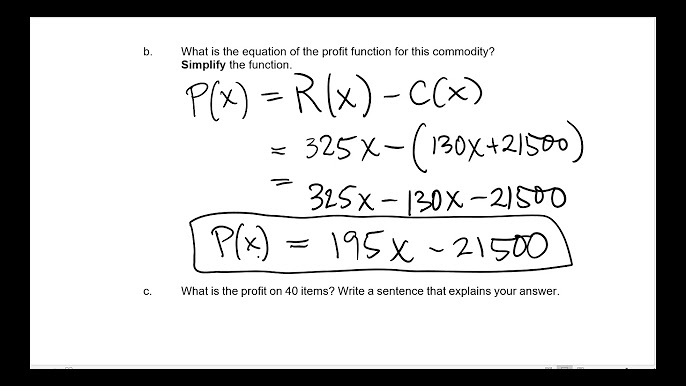 b. What is the equation of the profit function for this commodity?
Simplify the function.
P(x) = R(x) - C(x)
= 325x - (130x + 21500)
=
325x - 130x - 21500
P(x) = 195x - 21500
c. What is the profit on 40 items? Write a sentence that explains your answer.